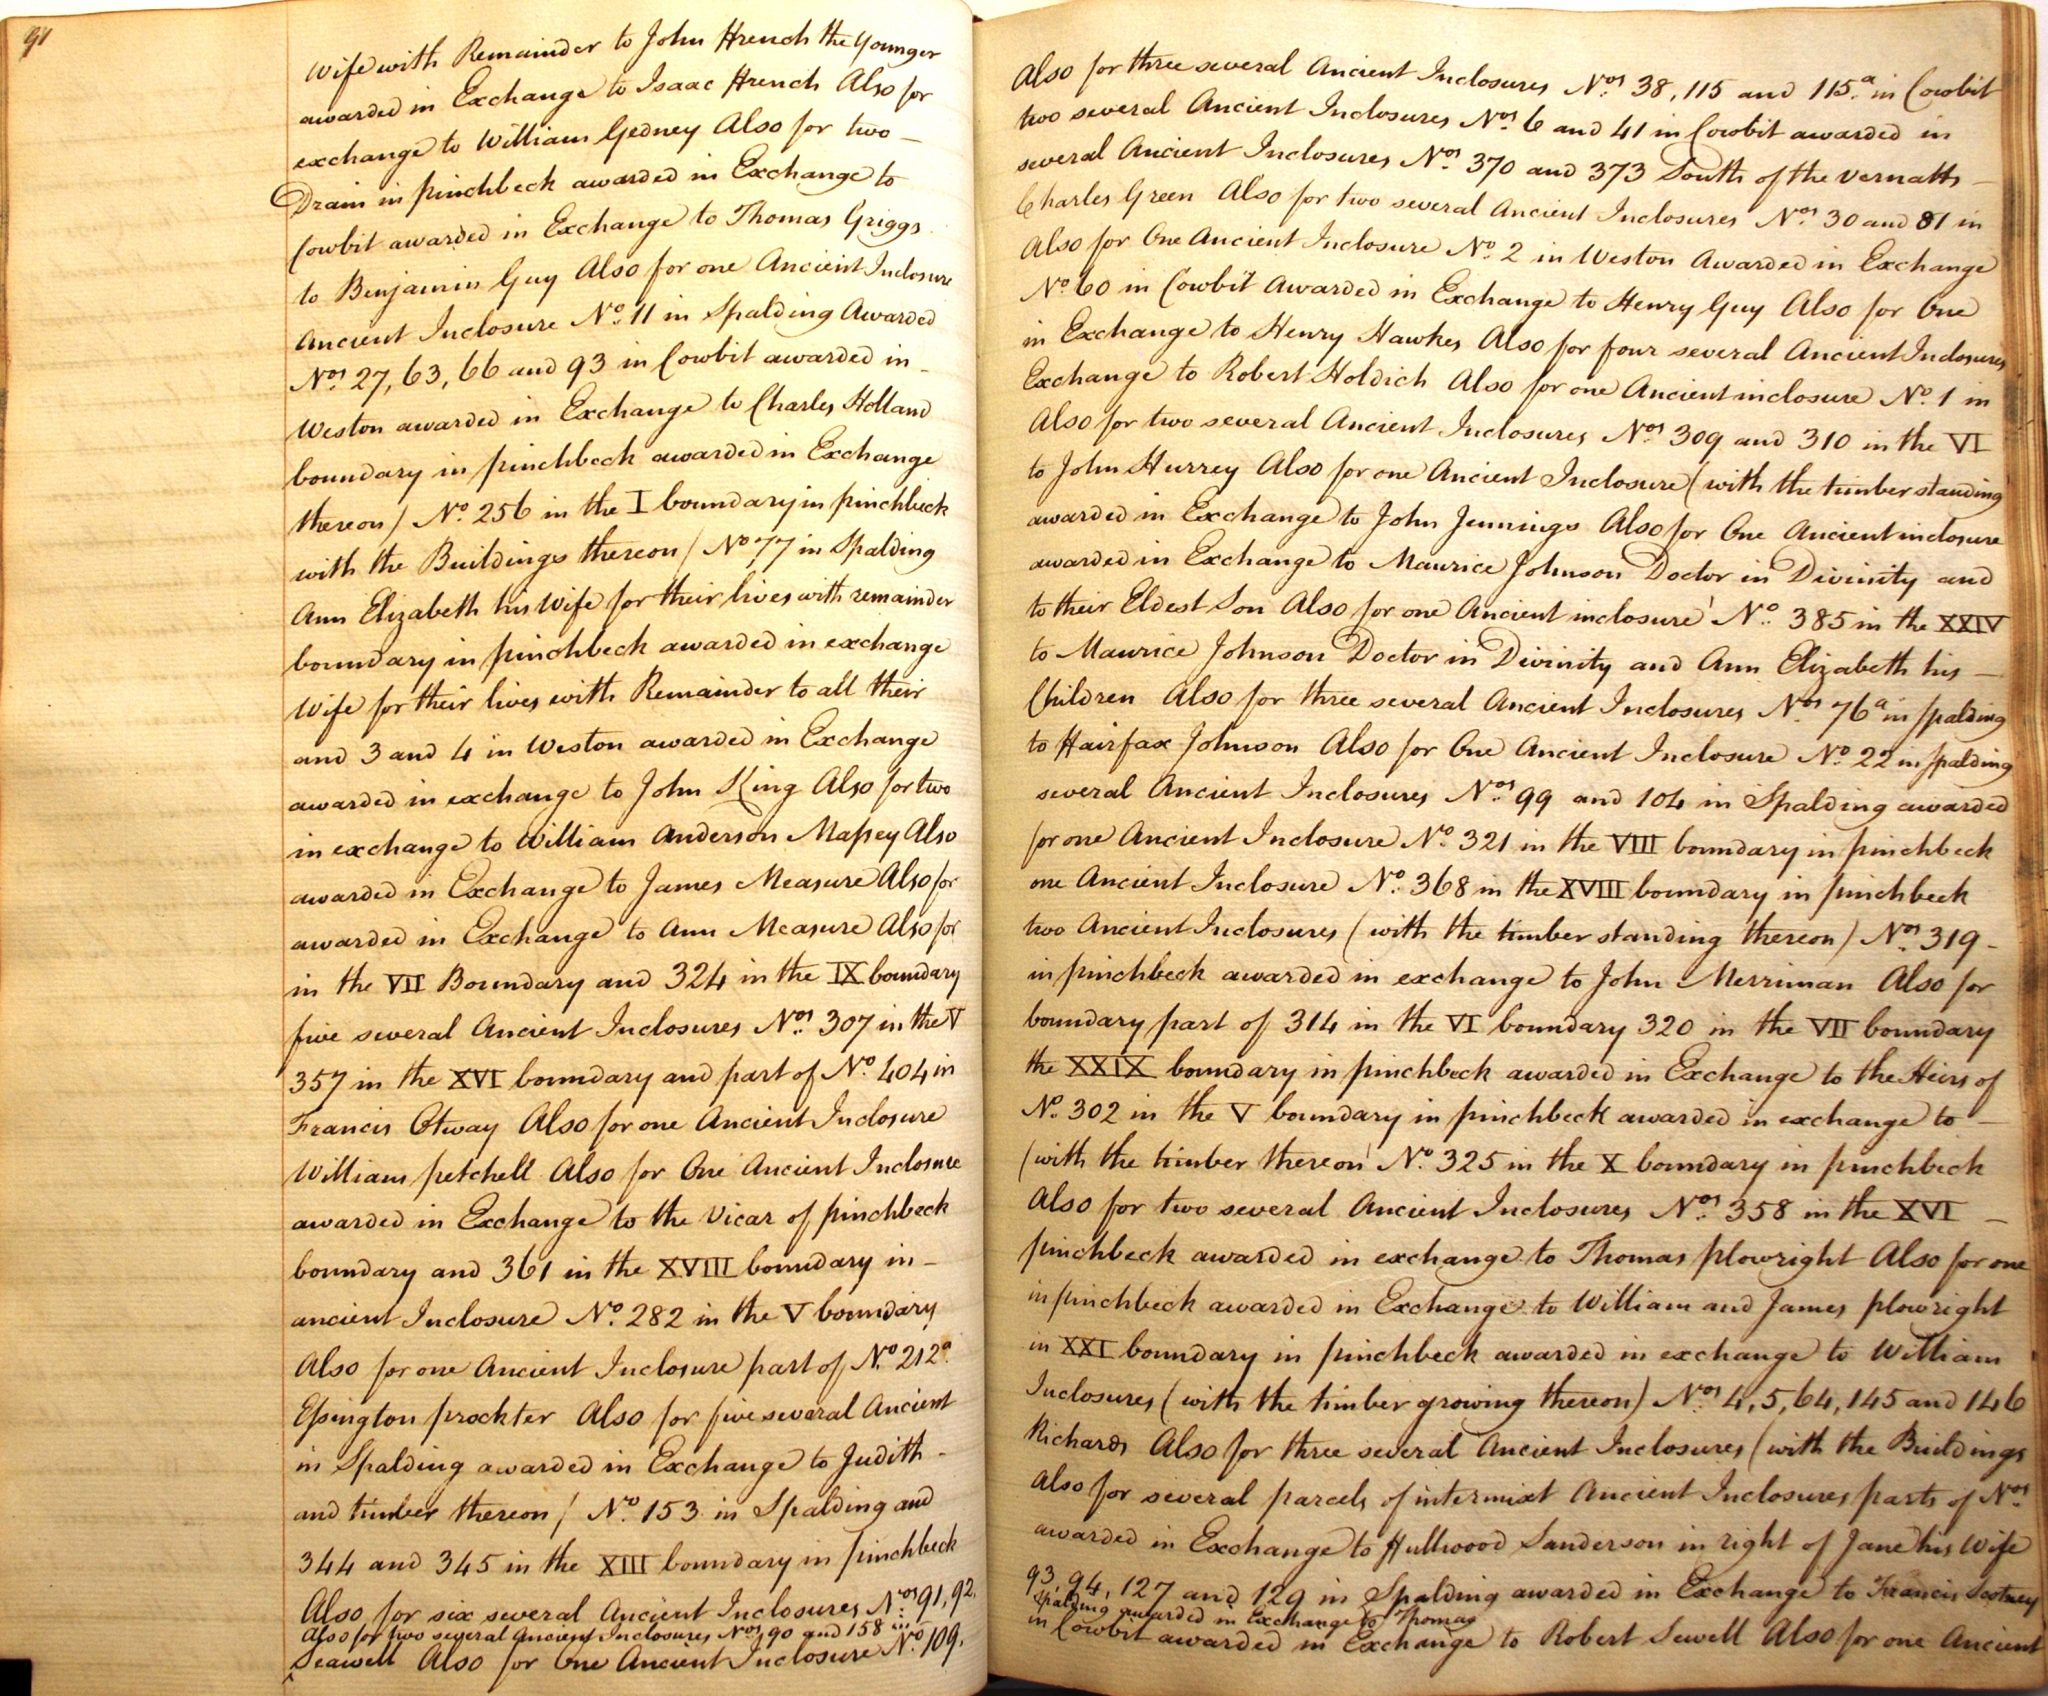 91
Wife with Remainder to John French the Younger Also for three several Ancient Inclosures Nos. 38, 115 and 115.a in Cowbit
awarded in Exchange to Isaac French Also for two several Ancient Inclosures Nos. 6 and 41 in Cowbit awarded in
exchange to William Gedney Also for two – several Ancient Inclosures Nos. 370 and 373 South of the Vernatts –
Drain in pinchbeck awarded in Exchange to Charles Green Also for two several Ancient Inclosures Nos. 30 and 81 in
Cowbit awarded in Exchange to Thomas Griggs Also for One Ancient Inclosure No. 2 in Weston Awarded in Exchange
to Benjamin Guy Also for one Ancient Inclosure No. 60 in Cowbit Awarded in Exchange to Henry Guy Also for One
Ancient Inclosure No. 11 in Spalding Awarded in Exchange to Henry Hawkes Also for four several Ancient Inclosures
Nos. 27, 63, 66 and 93 in Cowbit awarded in – Exchange to Robert Holdich Also for one Ancient inclosure No. 1 in
Weston awarded in Exchange to Charles Holland Also for two several Ancient Inclosures Nos. 309 and 310 in the VI
boundary in pinchbeck awarded in Exchange to John Hurrey Also for one Ancient Inclosure (with the timber standing
thereon) No. 256 in the I boundary in pinchbeck awarded in Exchange to John Jennings Also for One Ancient inclosure
with the Buildings thereon) No. 77 in Spalding awarded in Exchange to Maurice Johnson Doctor in Divinity and
Ann Elizabeth his Wife for their lives with remainder to their Eldest Son Also for one Ancient inclosure No. 385 in the XXIV
boundary in pinchbeck awarded in exchange to Maurice Johnson Doctor in Divinity and Ann Elizabeth his –
Wife for their lives with Remainder to all their Children Also for three several Ancient Inclosures Nos. 76a in spalding
and 3 and 4 in Weston awarded in Exchange to Fairfax Johnson Also for One Ancient Inclosure No. 22 in spalding
awarded in exchange to John King Also for two several Ancient Inclosures Nos. 99 and 104 in Spalding awarded
in exchange to William Anderson Massey Also for one Ancient Inclosure No. 321 in the VIII boundary in pinchbeck
awarded in Exchange to James Measure Also for one Ancient Inclosure No. 368 in the XVIII boundary in pinchbeck
awarded in Exchange to Ann Measure Also for two Ancient Inclosures (with the timber standing thereon) Nos. 319 –
in the VII Boundary and 324 in the IX boundary in pinchbeck awarded in exchange to John Merriman Also for
five several Ancient Inclosures Nos. 307 in the V boundary part of 314 in the VI boundary 320 in the VII boundary
357 in the XVI boundary and part of No. 404 in the XXIX boundary in pinchbeck awarded in Exchange to the Heirs of
Francis Otway Also for one Ancient Inclosure No. 302 in the V boundary in pinchbeck awarded in exchange to –
William petchell Also for One Ancient Inclosure (with the timber thereon) No. 325 in the X boundary in pinchbeck
awarded in Exchange to the Vicar of pinchbeck Also for two several Ancient Inclosures Nos. 358 in the XVI –
boundary and 361 in the XVIII boundary in – pinchbeck awarded in exchange to Thomas plowright Also for one
ancient Inclosure No. 282 in the V boundary in pinchbeck awarded in Exchange to William and James plowright
Also for one Ancient Inclosure part of No. 212a. in XXI boundary in pinchbeck awarded in exchange to William
Essington prockter Also for five several Ancient Inclosures (with the timber growing thereon) Nos. 4, 5, 64, 145 and 146
in Spalding awarded in Exchange to Judith – Richards Also for three several Ancient Inclosures (with the Buildings
and timber thereon) No. 153 in Spalding and Also for several parcels of intermixt Ancient Inclosures parts of Nos.
344 and 345 in the XIII boundary in pinchbeck awarded in Exchange to Hullwood Sanderson in right of Jane his Wife
Also for six several Ancient Inclosures Nos. 91, 92, 93, 94, 127 and 129 in Spalding awarded in Exchange to Francis Scotney
Also for two several Ancient Inclosures Nos. 90 and 158 in Spalding awarded in Exchange to Thomas
Seawell Also for One Ancient Inclosure No. 109, in Cowbit awarded in Exchange to Robert Sewell Also for one Ancient